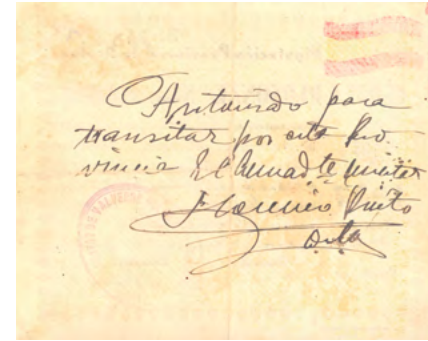 Autorisado para
transitar por esta Pro
vincia El Comadte militar
Florencio Prieto
VALVERDE